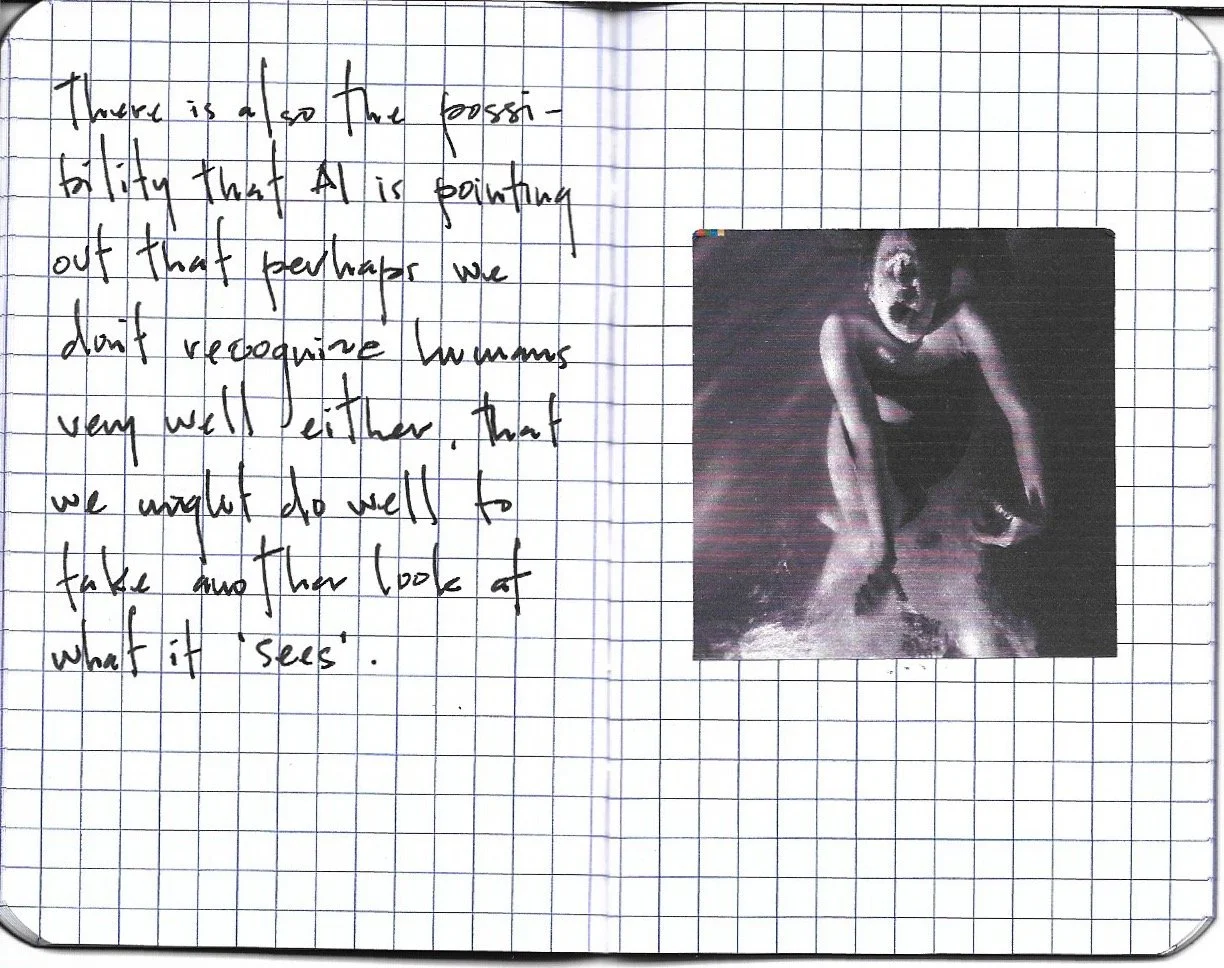 There is also the possi-
bility that AI is pointing
out that perhaps we
don't recognize humans
very well either, that
we might do well to
take another look at
what it 'sees'.